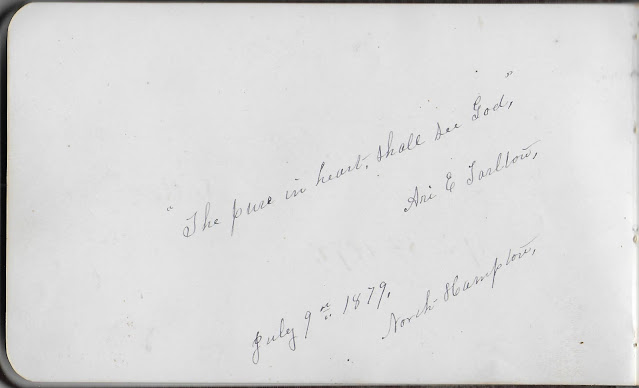 "The pure in heart, shall see God,"
Ari E Tarlton,
July 9th 1879,
North-Hampton,